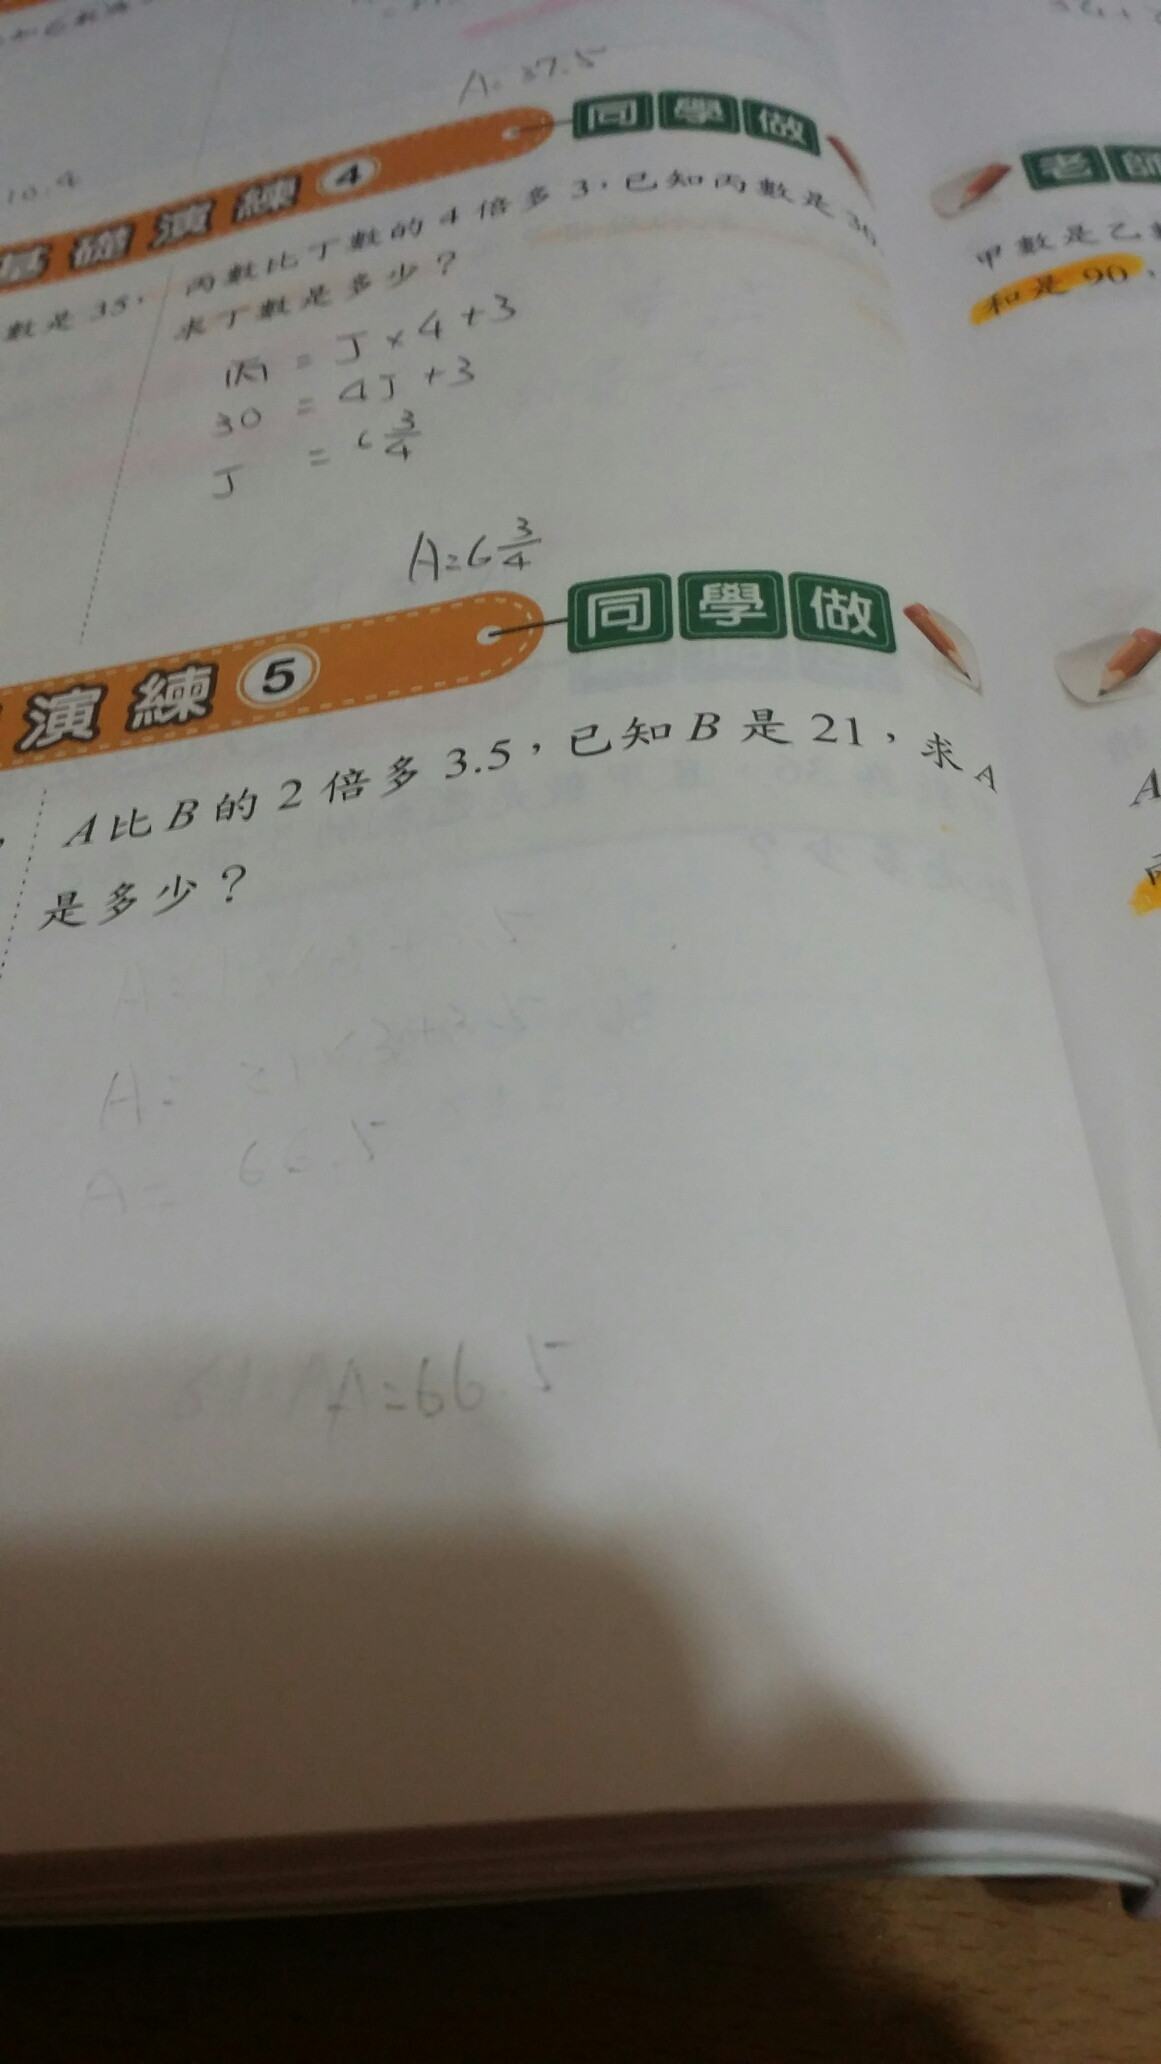 A=37.5
10.4
基礎演練 4 同學做
數是 35，
丙數比丁數的 4 倍多 3，已知丙數是 30，
求丁數是多少？
丙 = 丁×4+3
30 = 4丁+3
丁 = 6 3/4
A=6 3/4
演練 5 同學做
A 比 B 的 2 倍多 3.5，已知 B 是 21，求 A
是多少？
A= 21×3+3.5
A= 66.5
A=66.5
老師
甲數是乙
和是 90，